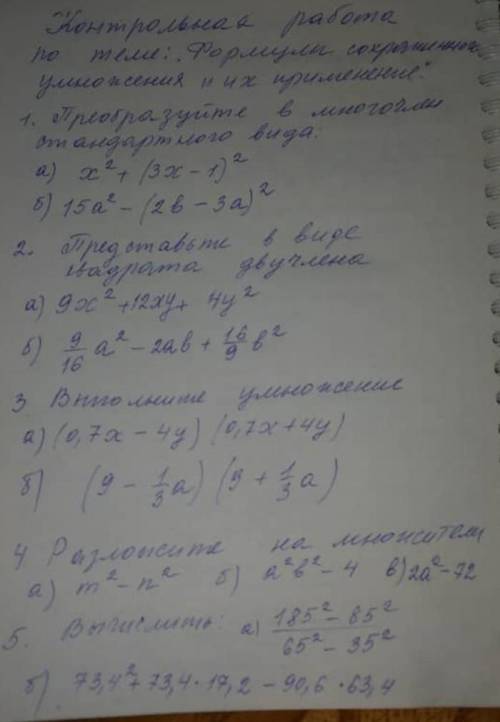 Контрольная работа
по теме: „Формулы сокращенного
умножения и их применение".
1. Преобразуйте в многочлен
стандартного вида:
а) x² + (3x - 1)²
б) 15a² - (2в - 3a)²
2. Представьте в виде
квадрата двучлена
а) 9x² + 12xy + 4y²
б) 9/16 a² - 2aв + 16/9 в²
3 Выполните умножение
а) (0,7x - 4y) (0,7x + 4y)
б) (9 - 1/3 a) (9 + 1/3 a)
4 Разложите на множители
а) m² - n² б) a²в² - 4 в) 2a² - 72
5. Вычислить: а) (185² - 85²)/(65² - 35²)
б) 73,4² + 73,4 · 17,2 - 90,6 · 63,4